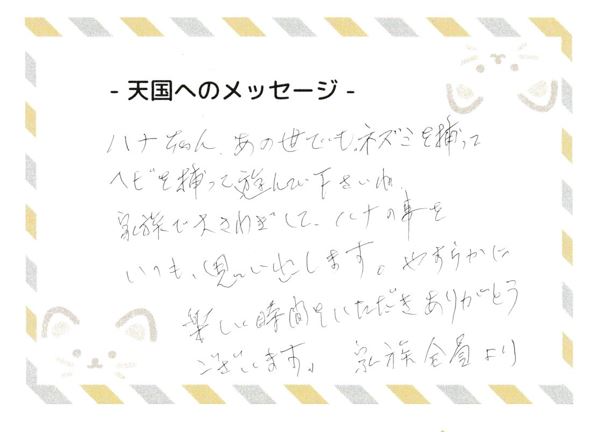 - 天国へのメッセージ -
ハナちゃん、あの世でもネズミを捕って
ヘビを捕って遊んで下さいね。
家族で大さわぎして、ハナの事を
いつも、思い出します。やすらかに
楽しい時間をいただきありがとう
ございます。 家族全員より